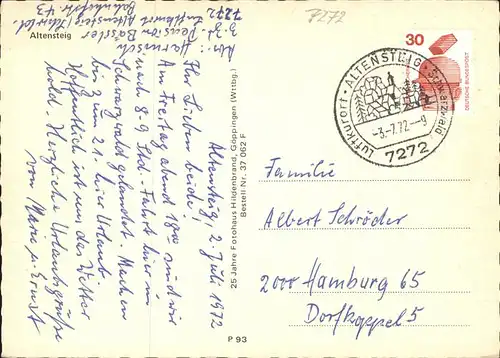 Altensteig
Abs: Harnisch
z. Zt. Pension Bässler
7272 Luftkurort Altensteig / Schwarzw.
Bahnhofstr 43
Altensteig, 2. Juli 1972
Ihr Lieben beide!
Am Freitag abend 18⁰⁰ sind wir
nach 8-9 Std. Fahrt hier im
Schwarzwald gelandet. Machen
bis zum 21. hier Urlaub.
Hoffentlich ist uns das Wetter
hold. Herzliche Urlaubsgrüße
von Marie u. Ernst
25 Jahre Fotohaus Hildenbrand, Göppingen (Wttbg.)
Bestell Nr. 37 062 F
P 93
7272
30
DEUTSCHE BUNDESPOST
Luftkurort · ALTENSTEIG · Schwarzwald
-3.-7.72--9
7272
Familie
Albert Schröder
2000 Hamburg 65
Dorfkoppel 5